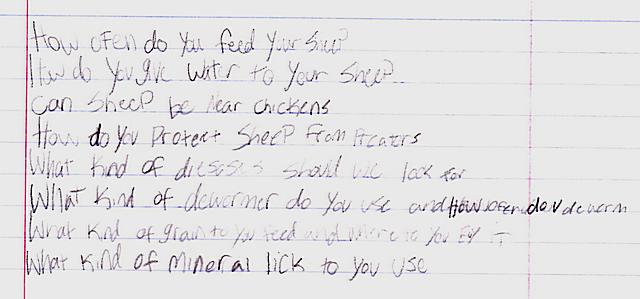 How ofen do you feed your sheep
How do you give water to your sheep
Can sheep be near chickens
How do you protect sheep from Preators
What kind of dieseses should we look for
What kind of dewormer do you use and How ofen do u deworm
What kind of grain to you feed and where to you
What kind of mineral lick to you use